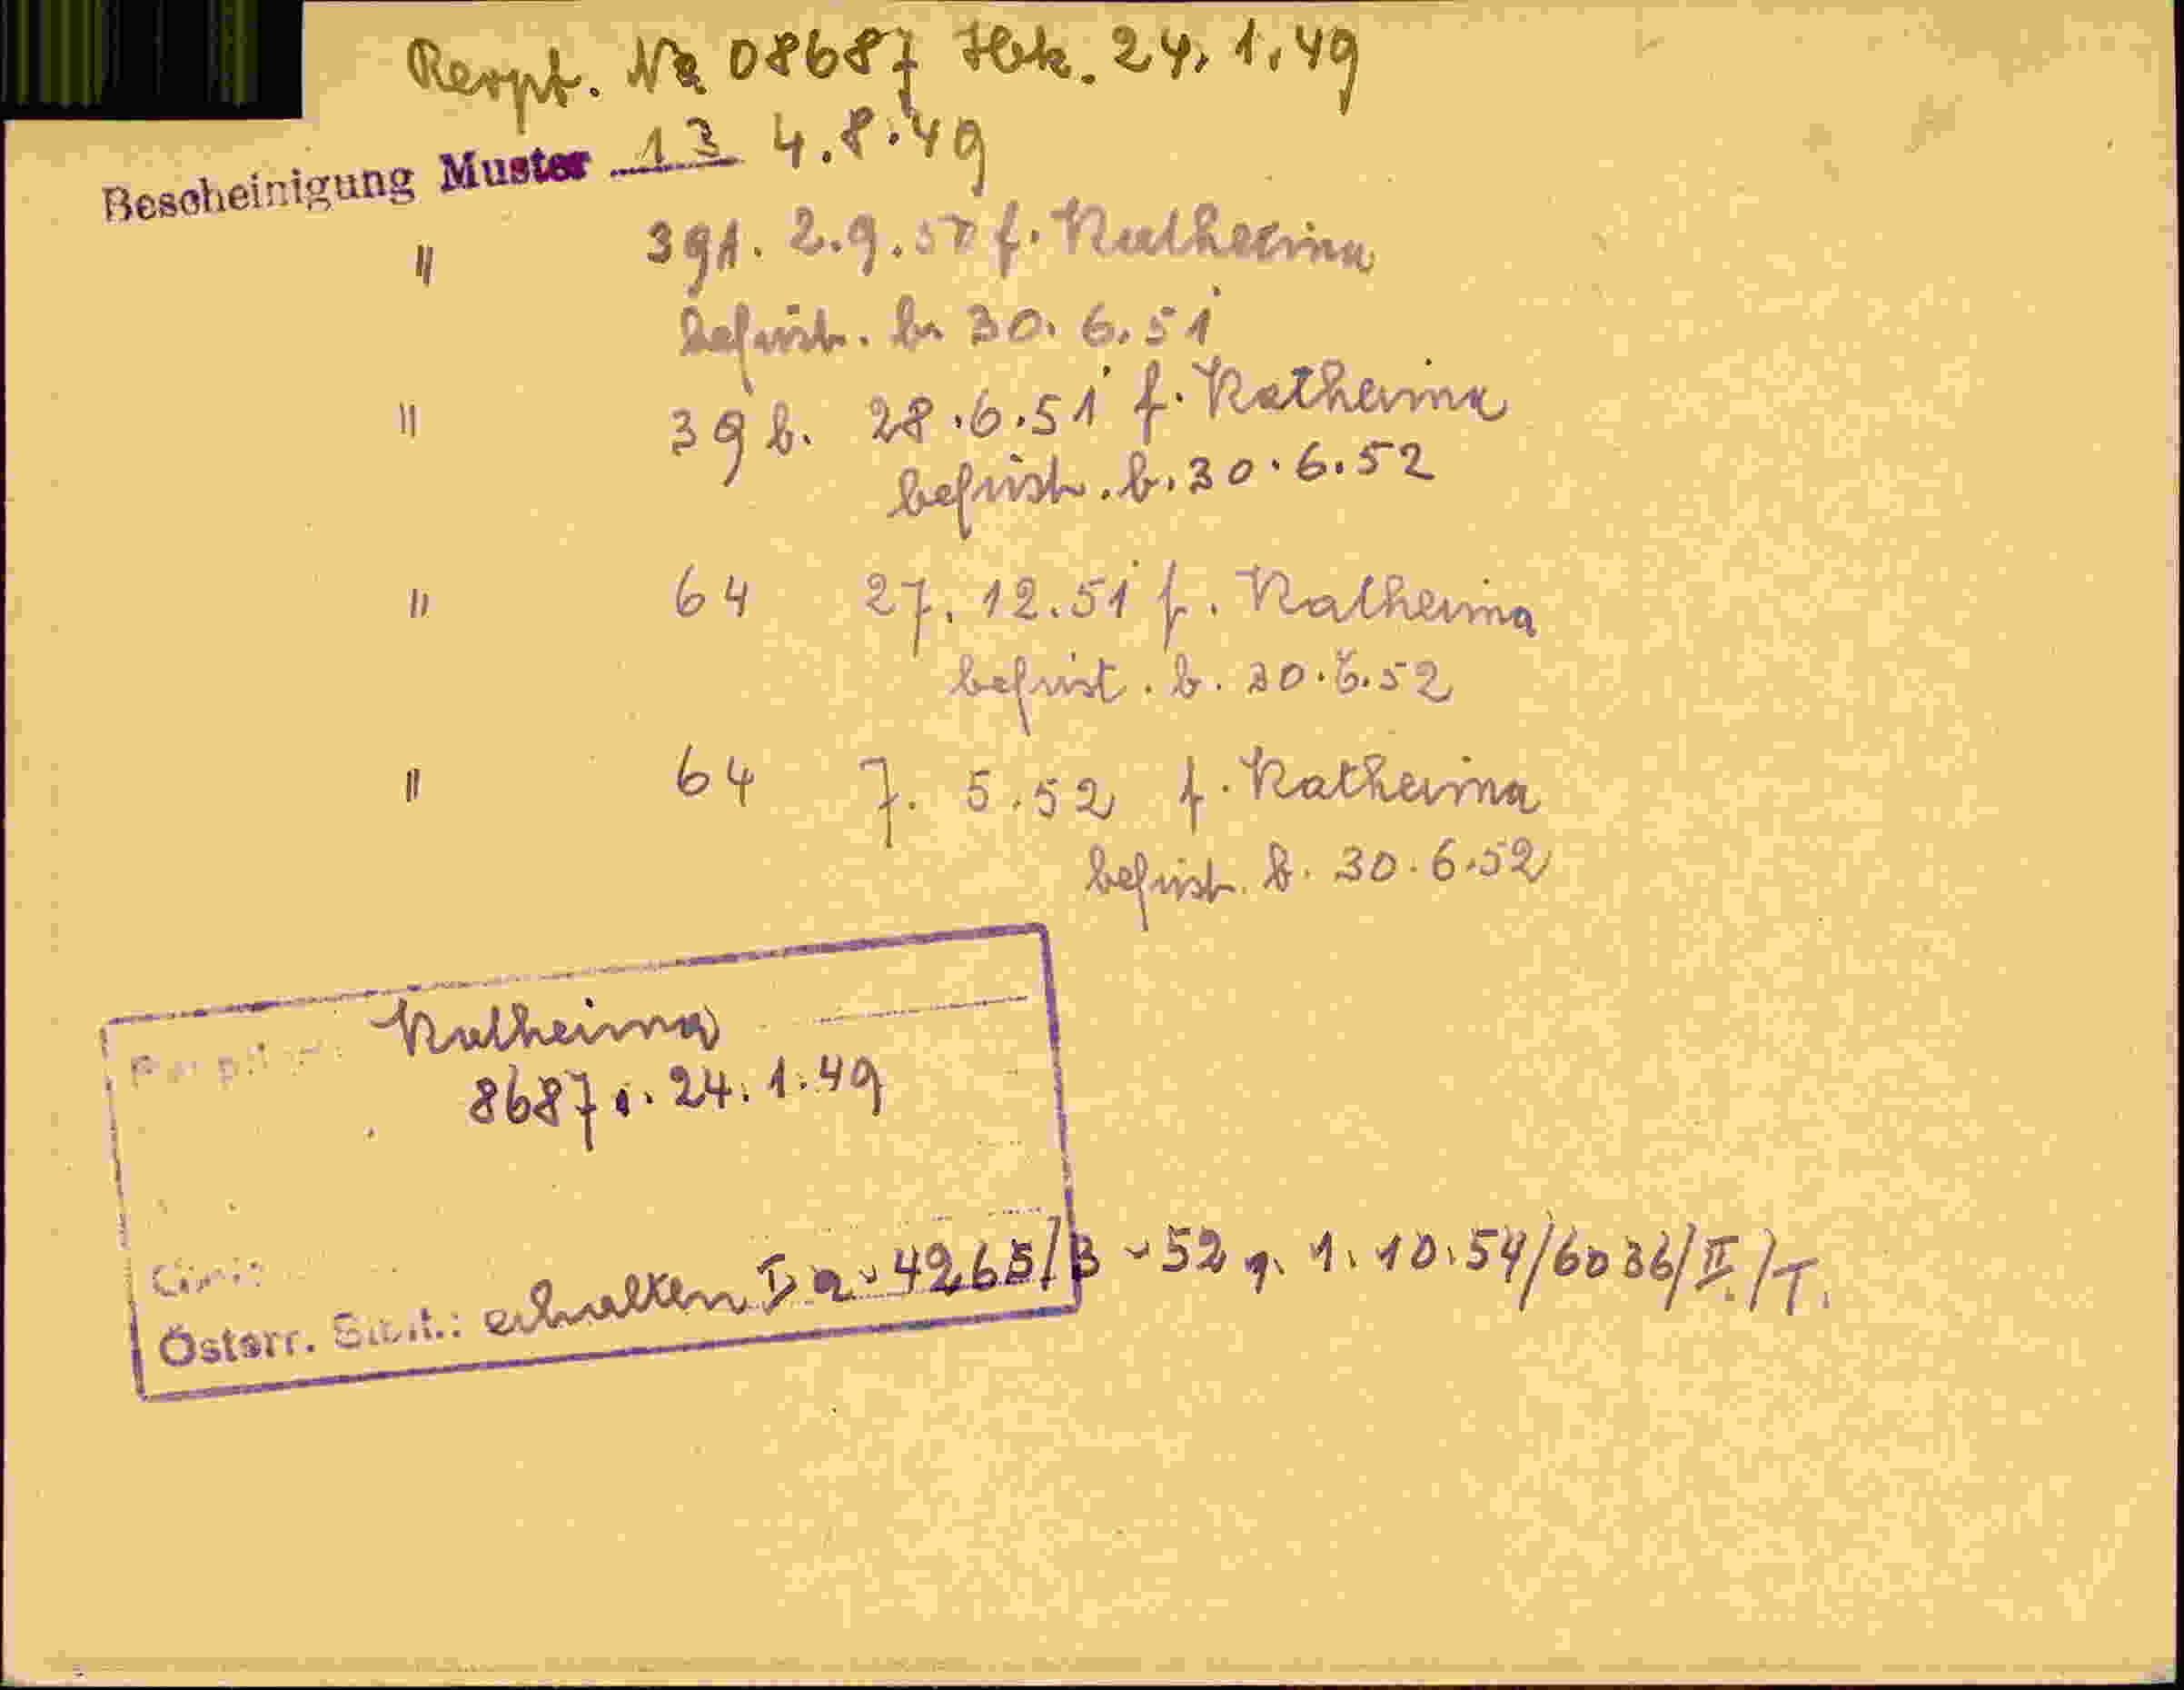 Rexpt. No 08687 Hbk. 24.1.49
Bescheinigung Muster 13 4.8.49
" 391. 2.9.50 f. Katherina
befrist. b. 30.6.51
" 39 b. 28.6.51 f. Katherina
befrist. b. 30.6.52
" 64 27.12.51 f. Katherina
befrist. b. 30.6.52
" 64 7.5.52 f. Katherina
befrist. b. 30.6.52
Katherina
8687 24.1.49
Österr. erhalten I a - 4265/B - 52 1.10.54/6036/II/T.